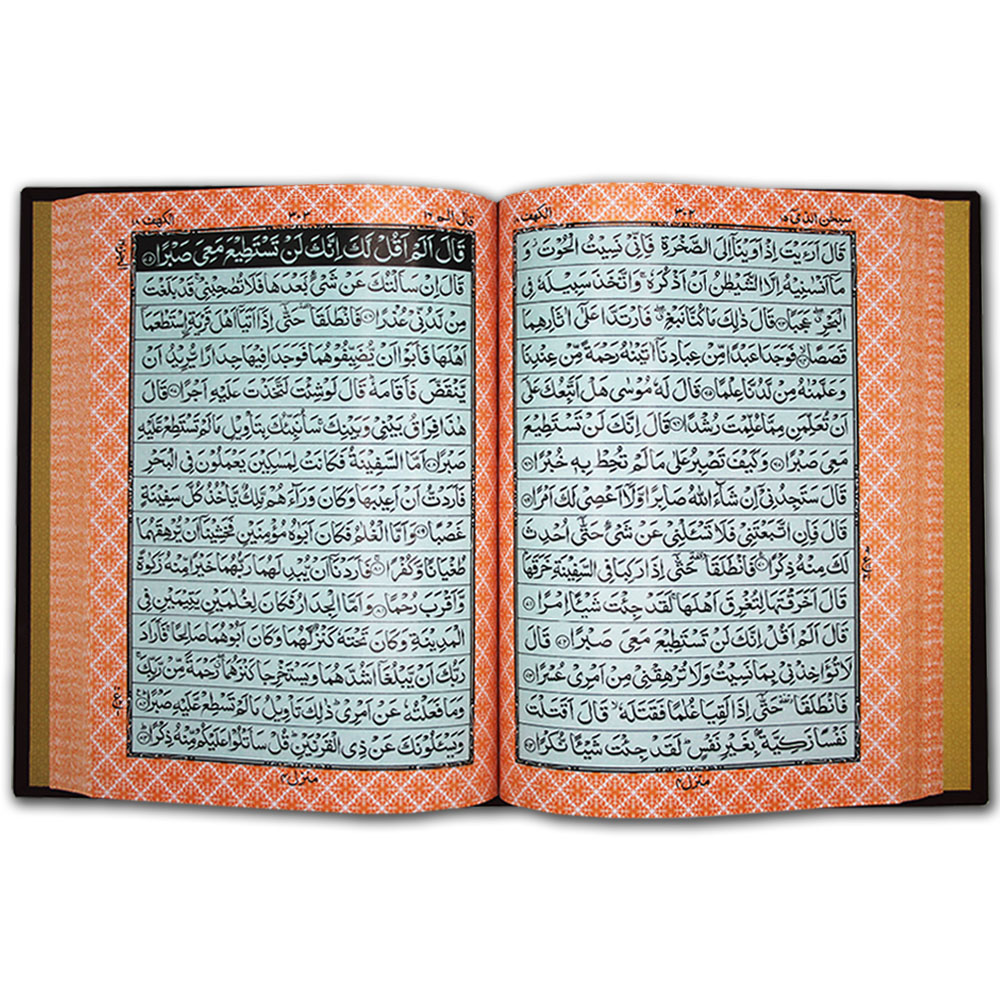 سبحن الذی ۱۵
۳۰۲
الکھف ۱۸
قَالَ اَرَءَیْتَ اِذْ اَوَیْنَاۤ اِلَی الصَّخْرَةِ فَاِنِّیْ نَسِیْتُ الْحُوْتَ ؗ وَ
مَاۤ اَنْسٰىنِیْهُ اِلَّا الشَّیْطٰنُ اَنْ اَذْكُرَهٗ ۚ وَاتَّخَذَ سَبِیْلَهٗ فِی
الْبَحْرِ ۖۗ عَجَبًا ﴿۶۳﴾ قَالَ ذٰلِكَ مَا كُنَّا نَبْغِ ۖۗ فَارْتَدَّا عَلٰۤی اٰثَارِهِمَا
قَصَصًا ﴿۶۴﴾ فَوَجَدَا عَبْدًا مِّنْ عِبَادِنَاۤ اٰتَیْنٰهُ رَحْمَةً مِّنْ عِنْدِنَا
وَعَلَّمْنٰهُ مِنْ لَّدُنَّا عِلْمًا ﴿۶۵﴾ قَالَ لَهٗ مُوْسٰی هَلْ اَتَّبِعُكَ عَلٰۤی
اَنْ تُعَلِّمَنِ مِمَّا عُلِّمْتَ رُشْدًا ﴿۶۶﴾ قَالَ اِنَّكَ لَنْ تَسْتَطِیْعَ
مَعِیَ صَبْرًا ﴿۶۷﴾ وَكَیْفَ تَصْبِرُ عَلٰی مَا لَمْ تُحِطْ بِهٖ خُبْرًا ﴿۶۸﴾
قَالَ سَتَجِدُنِیْۤ اِنْ شَآءَ اللّٰهُ صَابِرًا وَّلَاۤ اَعْصِیْ لَكَ اَمْرًا ﴿۶۹﴾
قَالَ فَاِنِ اتَّبَعْتَنِیْ فَلَا تَسْـَٔلْنِیْ عَنْ شَیْءٍ حَتّٰۤی اُحْدِثَ
لَكَ مِنْهُ ذِكْرًا ﴿۷۰﴾ فَانْطَلَقَا ۥ حَتّٰۤی اِذَا رَكِبَا فِی السَّفِیْنَةِ خَرَقَهَا ؕ
قَالَ اَخَرَقْتَهَا لِتُغْرِقَ اَهْلَهَا ۚ لَقَدْ جِئْتَ شَیْـًٔا اِمْرًا ﴿۷۱﴾
قَالَ اَلَمْ اَقُلْ اِنَّكَ لَنْ تَسْتَطِیْعَ مَعِیَ صَبْرًا ﴿۷۲﴾ قَالَ
لَا تُؤَاخِذْنِیْ بِمَا نَسِیْتُ وَلَا تُرْهِقْنِیْ مِنْ اَمْرِیْ عُسْرًا ﴿۷۳﴾
فَانْطَلَقَا ۥ حَتّٰۤی اِذَا لَقِیَا غُلٰمًا فَقَتَلَهٗ ۙ قَالَ اَقَتَلْتَ
نَفْسًا زَكِیَّةًۢ بِغَیْرِ نَفْسٍ ؕ لَقَدْ جِئْتَ شَیْـًٔا نُّكْرًا ﴿۷۴﴾
منزل ۴
قال الم ۱۶
۳۰۳
الکھف ۱۸
قَالَ اَلَمْ اَقُلْ لَّكَ اِنَّكَ لَنْ تَسْتَطِیْعَ مَعِیَ صَبْرًا ﴿۷۵﴾
قَالَ اِنْ سَاَلْتُكَ عَنْ شَیْءٍۭ بَعْدَهَا فَلَا تُصٰحِبْنِیْ ۚ قَدْ بَلَغْتَ
مِنْ لَّدُنِّیْ عُذْرًا ﴿۷۶﴾ فَانْطَلَقَا ۥ حَتّٰۤی اِذَاۤ اَتَیَاۤ اَهْلَ قَرْیَةِ ِۨاسْتَطْعَمَاۤ
اَهْلَهَا فَاَبَوْا اَنْ یُّضَیِّفُوْهُمَا فَوَجَدَا فِیْهَا جِدَارًا یُّرِیْدُ اَنْ
یَّنْقَضَّ فَاَقَامَهٗ ؕ قَالَ لَوْ شِئْتَ لَتَّخَذْتَ عَلَیْهِ اَجْرًا ﴿۷۷﴾ قَالَ
هٰذَا فِرَاقُ بَیْنِیْ وَبَیْنِكَ ۚ سَاُنَبِّئُكَ بِتَاْوِیْلِ مَا لَمْ تَسْتَطِعْ عَّلَیْهِ
صَبْرًا ﴿۷۸﴾ اَمَّا السَّفِیْنَةُ فَكَانَتْ لِمَسٰكِیْنَ یَعْمَلُوْنَ فِی الْبَحْرِ
فَاَرَدْتُّ اَنْ اَعِیْبَهَا وَكَانَ وَرَآءَهُمْ مَّلِكٌ یَّاْخُذُ كُلَّ سَفِیْنَةٍ
غَصْبًا ﴿۷۹﴾ وَاَمَّا الْغُلٰمُ فَكَانَ اَبَوٰهُ مُؤْمِنَیْنِ فَخَشِیْنَاۤ اَنْ یُّرْهِقَهُمَا
طُغْیَانًا وَّكُفْرًا ﴿۸۰﴾ فَاَرَدْنَاۤ اَنْ یُّبْدِلَهُمَا رَبُّهُمَا خَیْرًا مِّنْهُ زَكٰوةً
وَّاَقْرَبَ رُحْمًا ﴿۸۱﴾ وَاَمَّا الْجِدَارُ فَكَانَ لِغُلٰمَیْنِ یَتِیْمَیْنِ فِی
الْمَدِیْنَةِ وَكَانَ تَحْتَهٗ كَنْزٌ لَّهُمَا وَكَانَ اَبُوْهُمَا صَالِحًا ۚ فَاَرَادَ
رَبُّكَ اَنْ یَّبْلُغَاۤ اَشُدَّهُمَا وَیَسْتَخْرِجَا كَنْزَهُمَا ۖۗ رَحْمَةً مِّنْ رَّبِّكَ ۚ
وَمَا فَعَلْتُهٗ عَنْ اَمْرِیْ ؕ ذٰلِكَ تَاْوِیْلُ مَا لَمْ تَسْطِعْ عَّلَیْهِ صَبْرًا ﴿۸۲﴾
وَیَسْـَٔلُوْنَكَ عَنْ ذِی الْقَرْنَیْنِ ؕ قُلْ سَاَتْلُوْا عَلَیْكُمْ مِّنْهُ ذِكْرًا ﴿۸۳﴾
منزل ۴